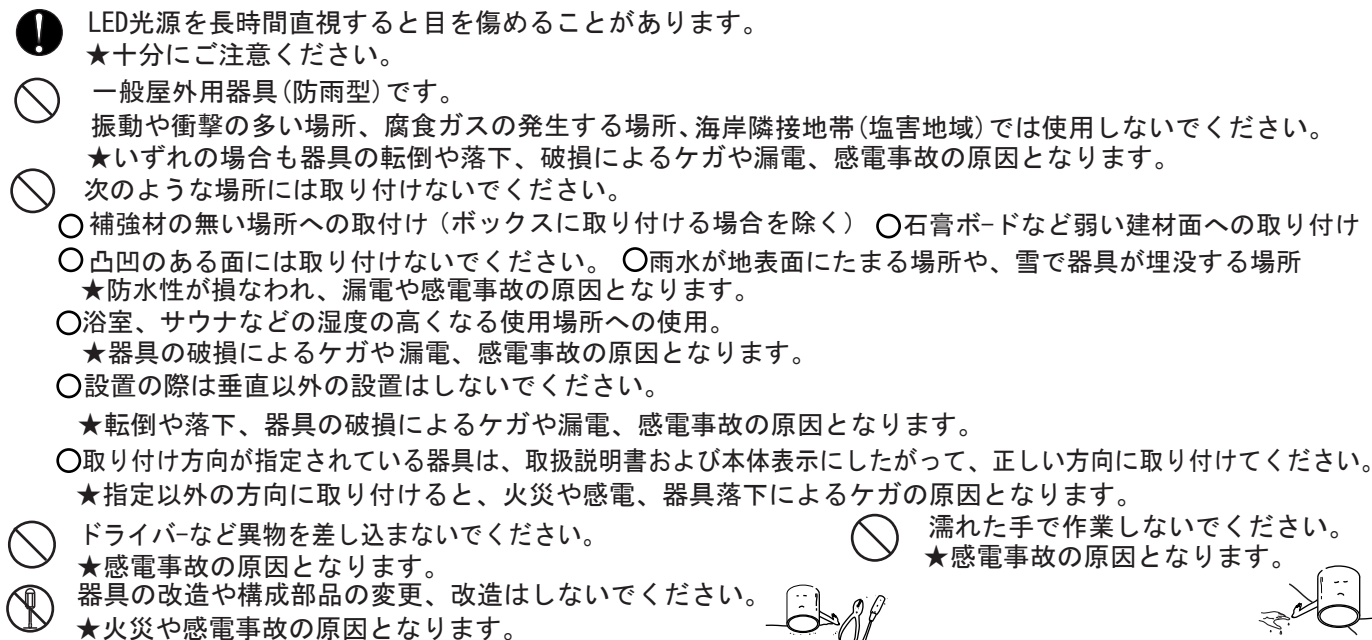 LED光源を長時間直視すると目を傷めることがあります。
★十分にご注意ください。
一般屋外用器具(防雨型)です。
振動や衝撃の多い場所、腐食ガスの発生する場所、海岸隣接地帯(塩害地域)では使用しないでください。
★いずれの場合も器具の転倒や落下、破損によるケガや漏電、感電事故の原因となります。
次のような場所には取り付けないでください。
○補強材の無い場所への取付け(ボックスに取り付ける場合を除く) ○石膏ボードなど弱い建材面への取り付け
○凸凹のある面には取り付けないでください。 ○雨水が地表面にたまる場所や、雪で器具が埋没する場所
★防水性が損なわれ、漏電や感電事故の原因となります。
○浴室、サウナなどの湿度の高くなる使用場所への使用。
★器具の破損によるケガや漏電、感電事故の原因となります。
○設置の際は垂直以外の設置はしないでください。
★転倒や落下、器具の破損によるケガや漏電、感電事故の原因となります。
○取り付け方向が指定されている器具は、取扱説明書および本体表示にしたがって、正しい方向に取り付けてください。
★指定以外の方向に取り付けると、火災や感電、器具落下によるケガの原因となります。
ドライバーなど異物を差し込まないでください。
★感電事故の原因となります。
濡れた手で作業しないでください。
★感電事故の原因となります。
器具の改造や構成部品の変更、改造はしないでください。
★火災や感電事故の原因となります。